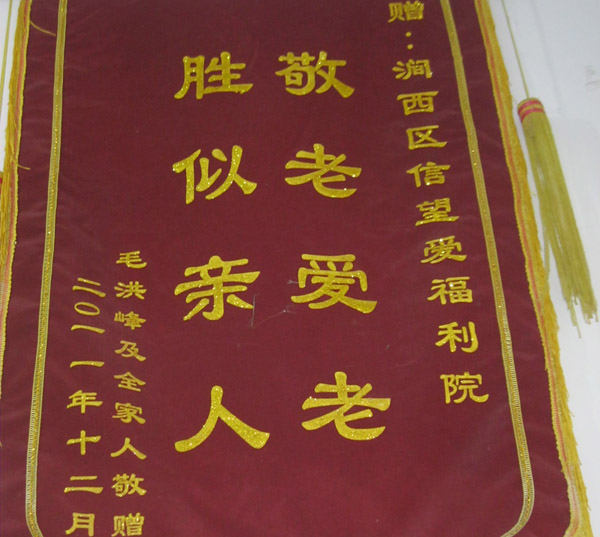 赠：涧西区信望爱福利院
敬老爱老
胜似亲人
毛洪峰及全家人敬赠
二〇一一年十二月